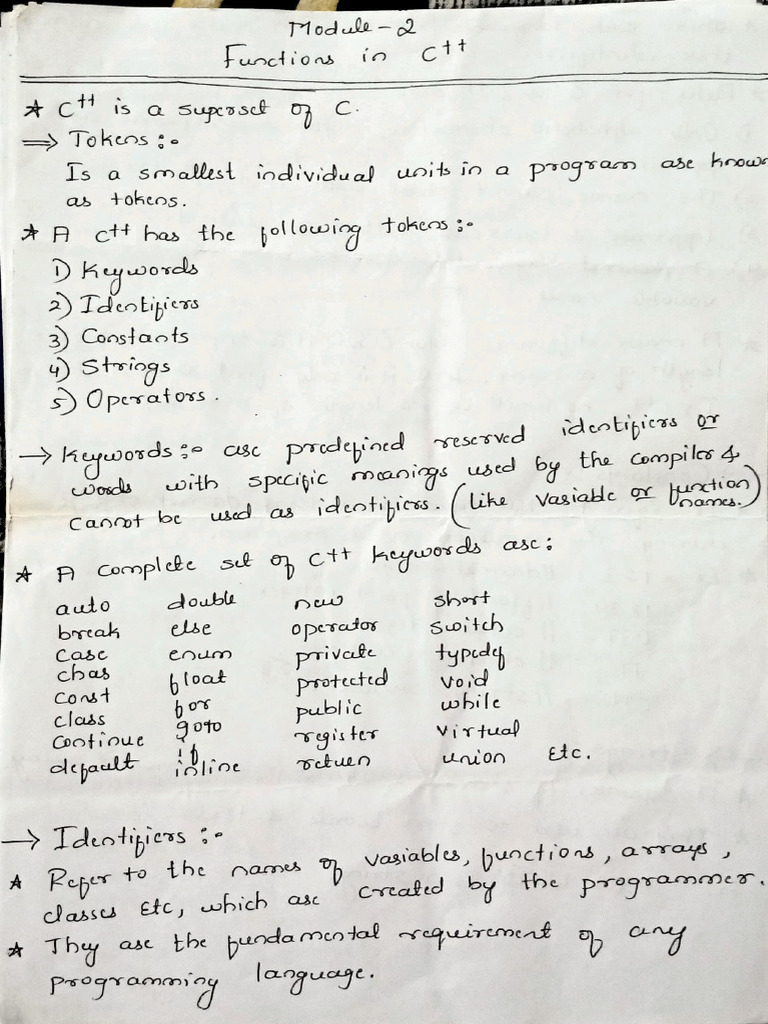 Module - 2
Functions in C++
* C++ is a superset of C.
=> Tokens :-
Is a smallest individual units in a program are known
as tokens.
* A C++ has the following tokens :-
1) Keywords
2) Identifiers
3) Constants
4) Strings
5) Operators.
→ Keywords :- are predefined reserved identifiers or
words with specific meanings used by the compiler &
cannot be used as identifiers. (like variable or function names.)
* A complete set of C++ keywords are:
auto double new short
break else operator switch
case enum private typedef
char float protected void
const for public while
class goto register virtual
continue if return union Etc.
default inline
→ Identifiers :-
* Refer to the names of variables, functions, arrays,
classes Etc, which are created by the programmer.
* They are the fundamental requirement of any
programming language.